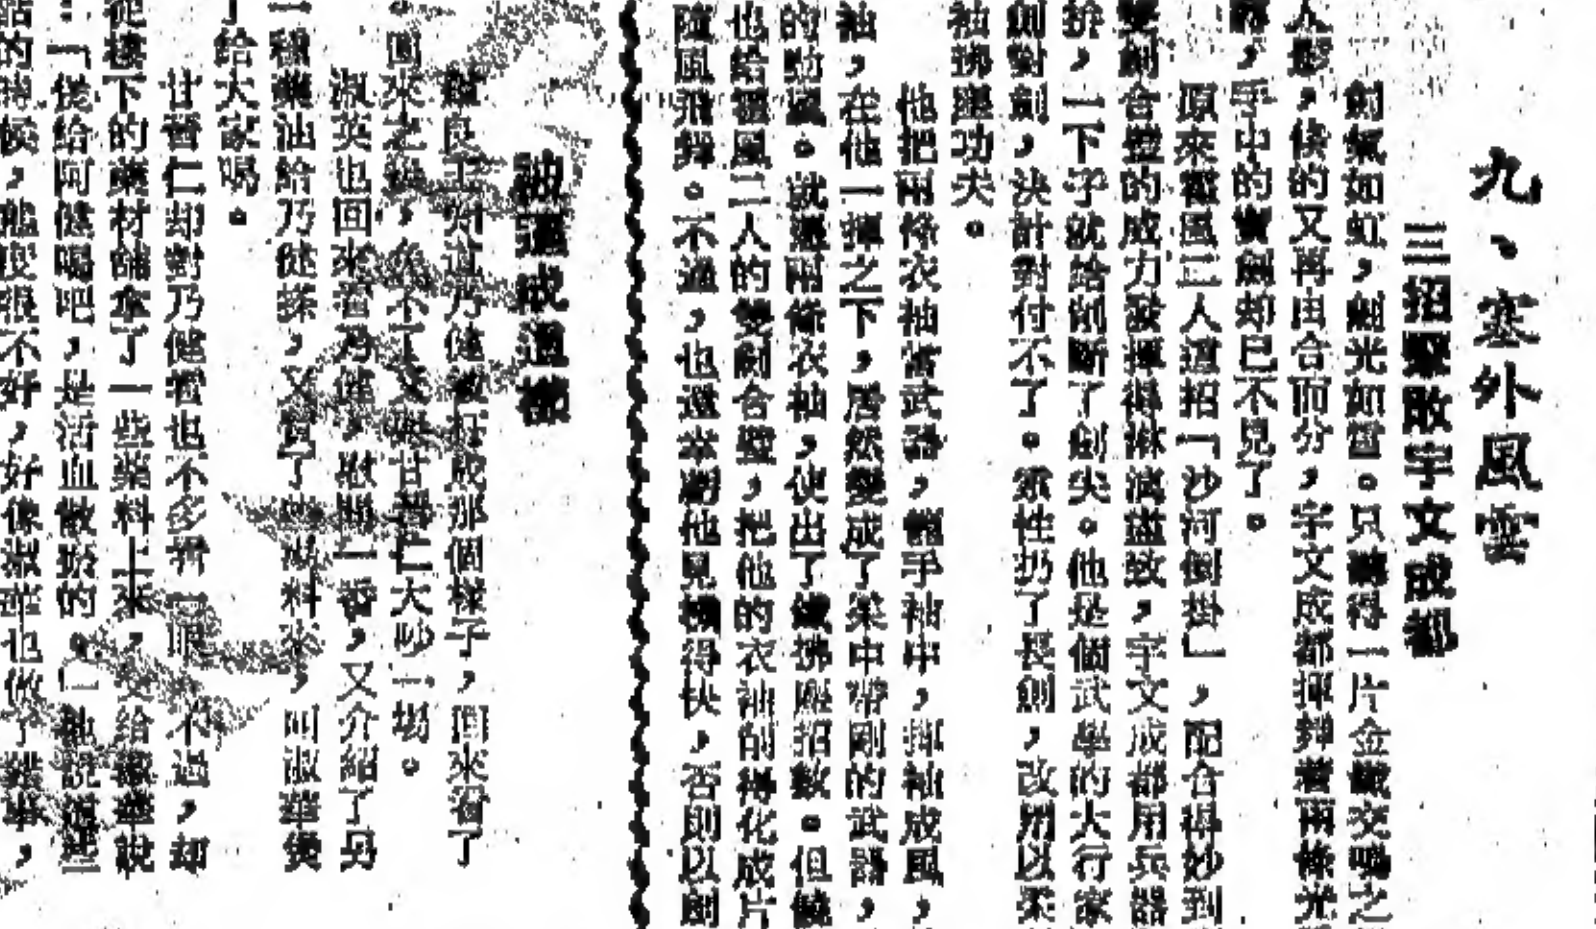 九、塞外風雲
三招擊敗宇文成都
劍氣如虹,劍光如雷。只聽得一片金鐵交鳴之
人影,倏的又再由合而分,宇文成都揮舞着兩條光
,手中的寶劍却已不見了。
原來霍風二人這招「沙河倒掛」,配合得妙到
雙劍合璧的威力發揮得淋漓盡致,宇文成都用兵器
拚,一下子就給削斷了劍尖。他是個武學的大行家
劍對劍,決計對付不了。索性扔了長劍,改用以柔
袖拂塵功夫。
他把兩條衣袖當武器,縮手袖中,揮袖成風,
袖,在他一揮之下,居然變成了柔中帶剛的武器,
的勁風。就憑兩條衣袖,使出了鐵拂塵招數。但饒
他給霍風二人的雙劍合璧,把他的衣袖削得化成片
隨風飛舞。不過,也還幸虧他見機得快,否則以劍
對這乃健被打成那個樣子,回來看了
回來之後,免不了又與甘晉仁大吵一場。
淑英也回來看乃健,慰問一番,又介紹了另
一種藥油給乃健搽,又買了 料來,叫淑華煲
了給大家喝。
甘晉仁却對乃健看也不多看一眼,不過,却
從樓下的藥材舖拿了一些藥料上來,交給淑華說
:「煲給阿健喝吧,是活血散瘀的。」她說這些
話的時候,態度很不好,好像淑華也做了錯事,